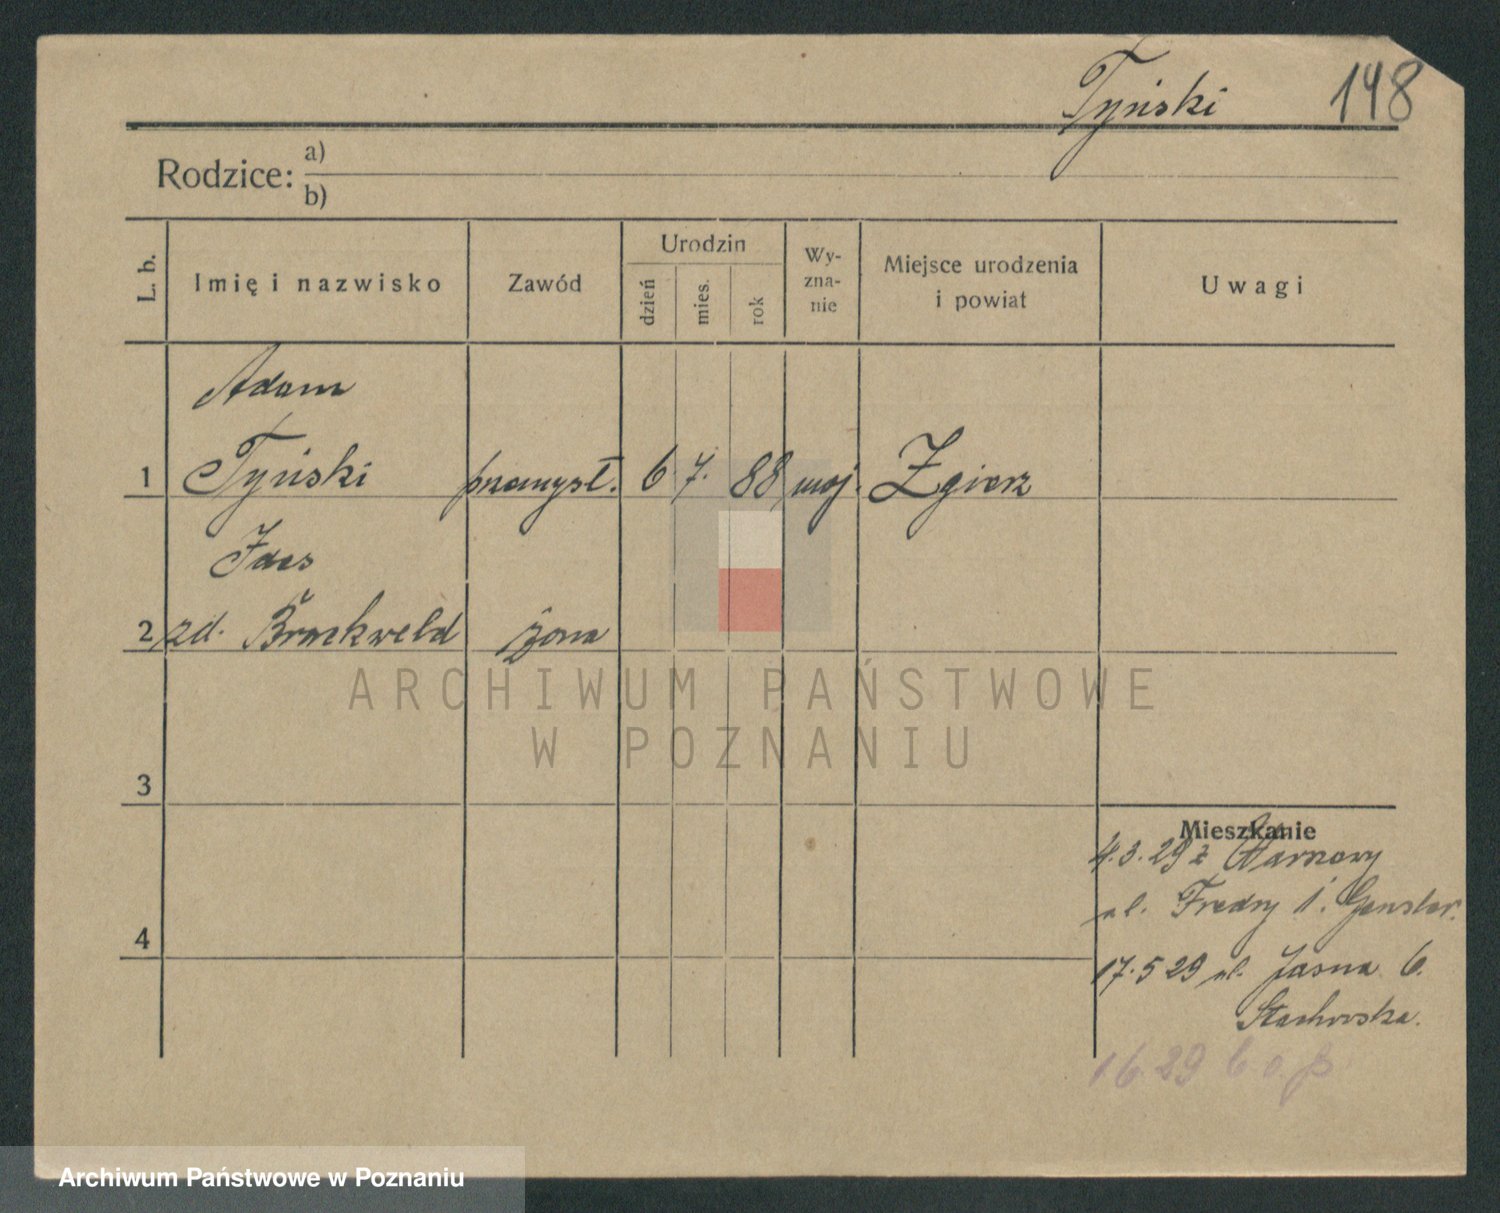 Tyński 148
Rodzice: a)
b)
L. b.
Imię i nazwisko
Zawód
Urodzin
dzień
mies.
rok
Wy-
zna-
nie
Miejsce urodzenia
i powiat
Uwagi
Adam
1 Tyński przemysł. 6 7. 88 mojż. Zgierz
2 zd. żona
3
4
Mieszkanie
4.3.29 z Warszawy
ul. Fredry 1.
17.5 29 ul. Jasna 6.
Stachowska.
1 6 29 b o p
ARCHIWUM PAŃSTWOWE
W POZNANIU
Archiwum Państwowe w Poznaniu